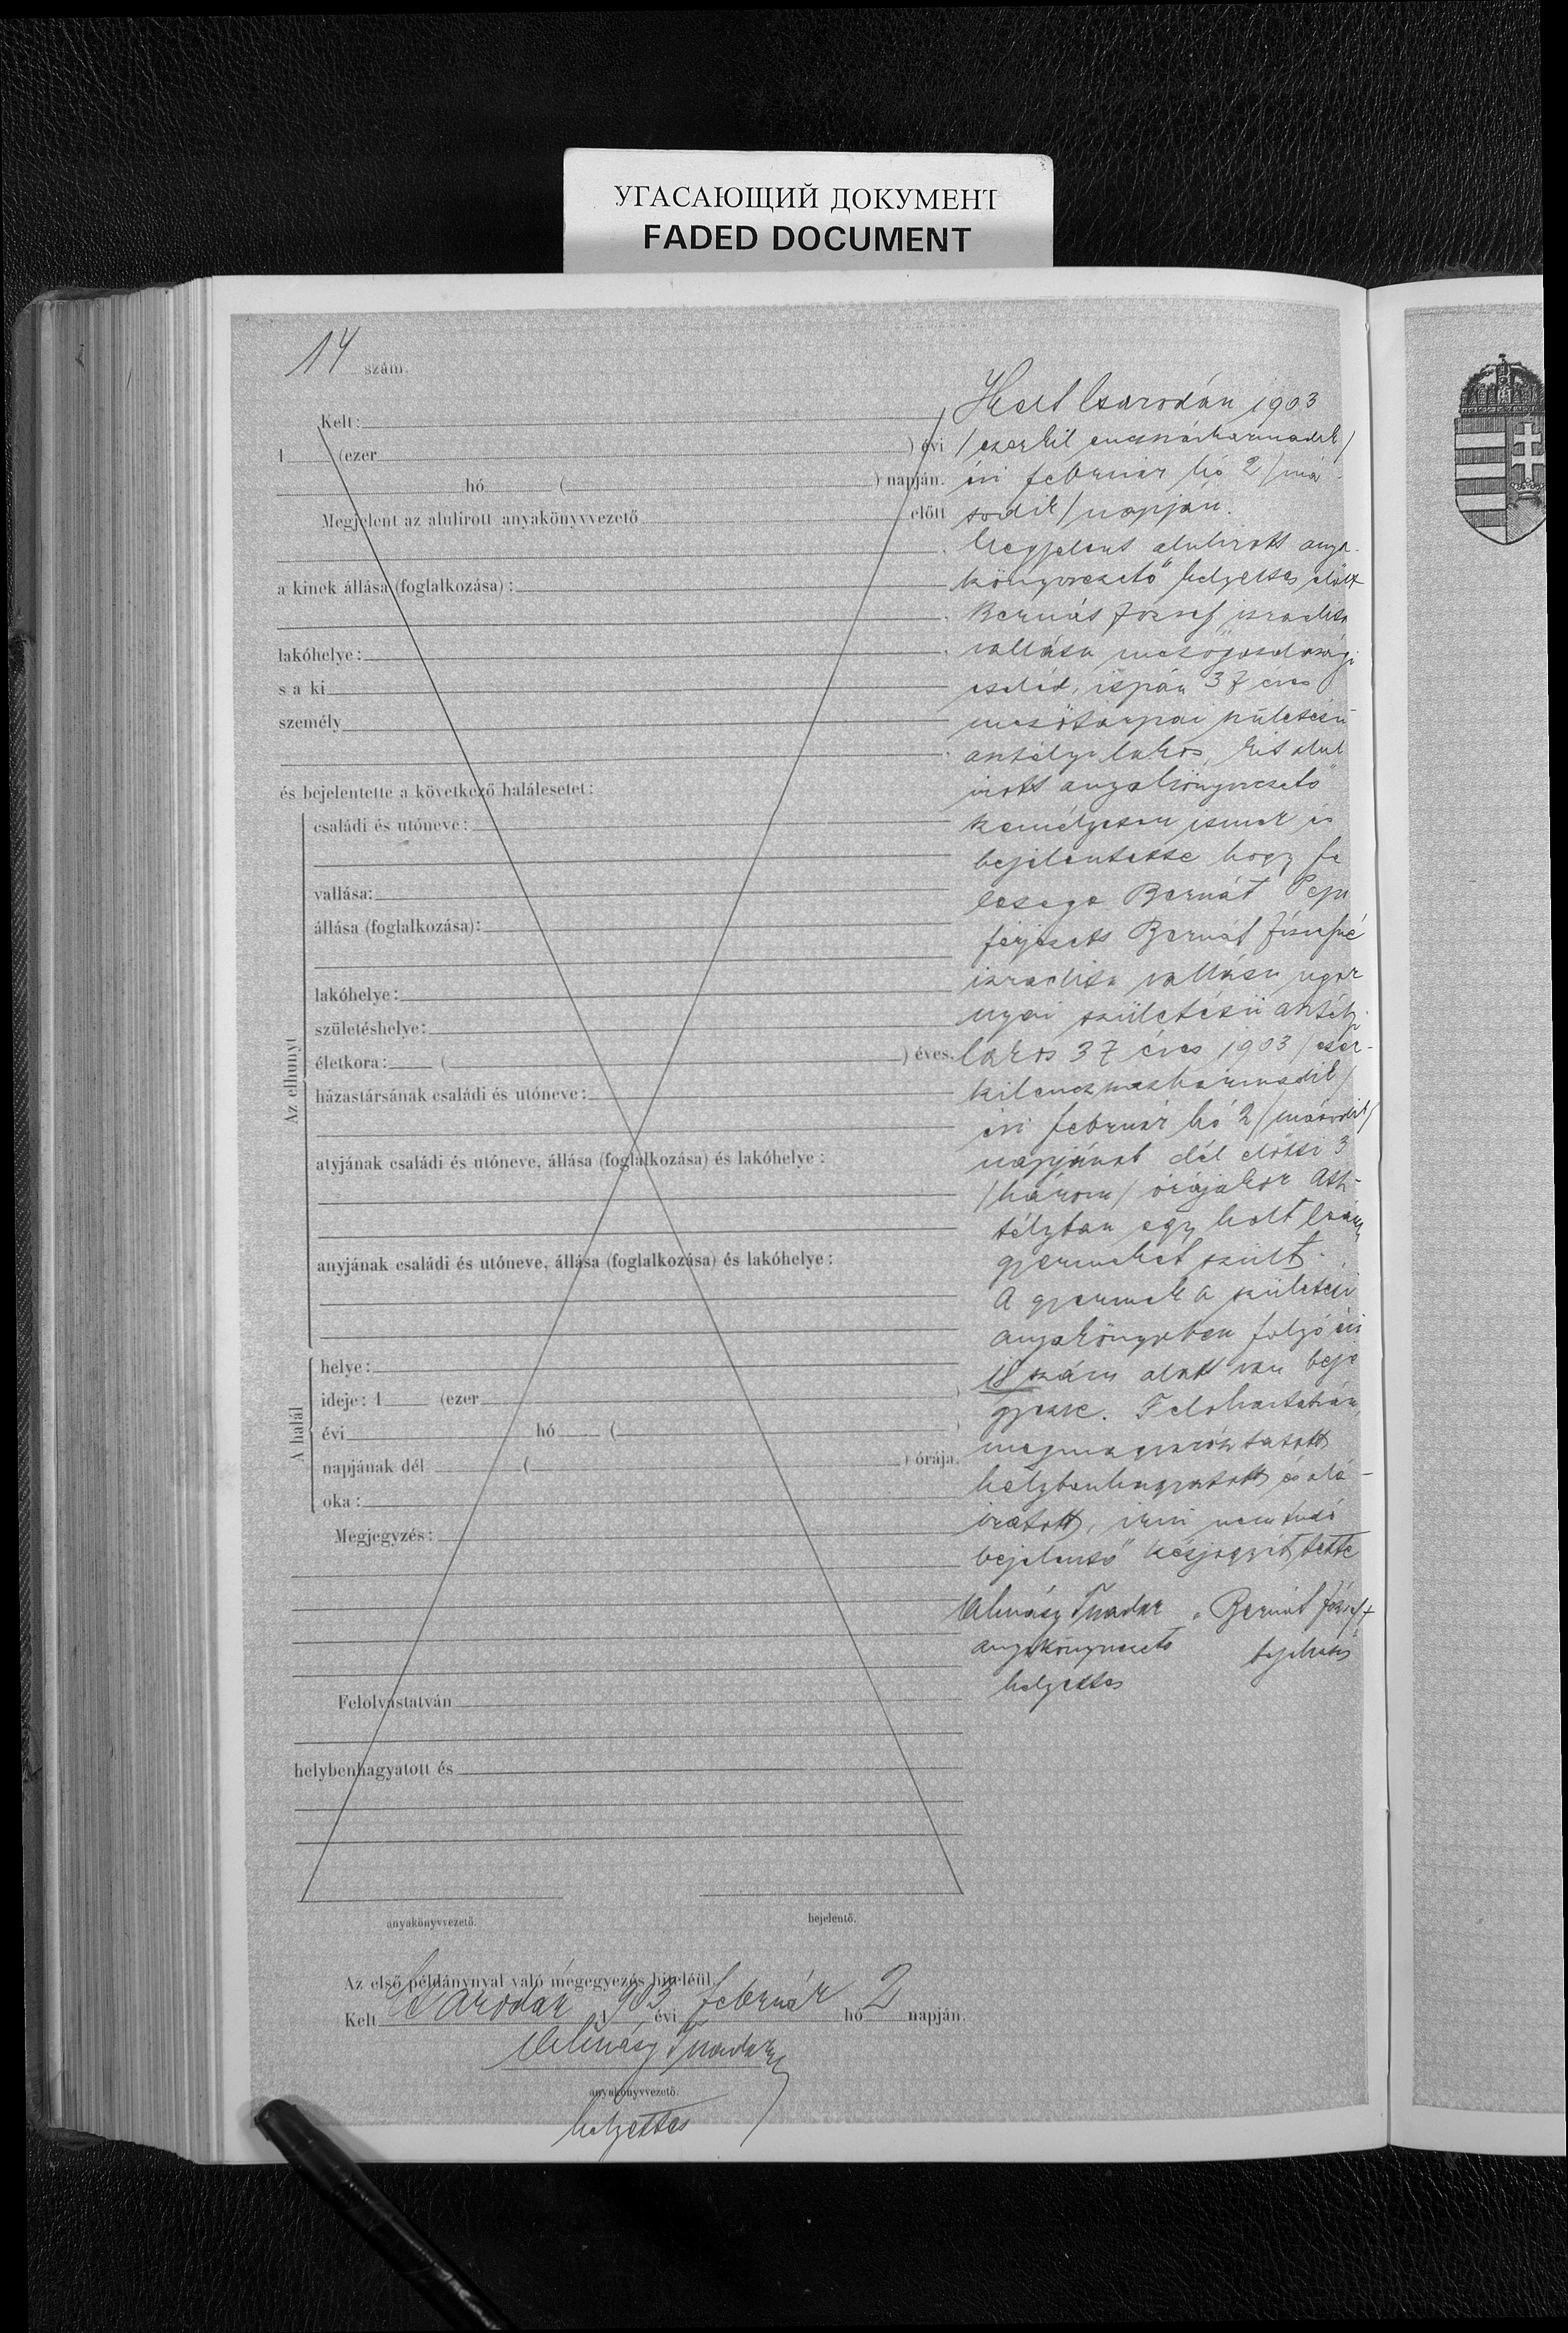 УГАСАЮЩИЙ ДОКУМЕНТ
FADED DOCUMENT
14 szám.
Kelt:
1 (ezer ) évi
hó ( ) napján.
Megjelent az alulirott anyakönyvvezető előtt
a kinek állása (foglalkozása):
lakóhelye:
s a ki
személy
és bejelentette a következő halálesetet:
Az elhunyt
családi és utóneve:
vallása:
állása (foglalkozása):
lakóhelye:
születéshelye:
életkora: ( ) éves.
házastársának családi és utóneve:
atyjának családi és utóneve, állása (foglalkozása) és lakóhelye:
anyjának családi és utóneve, állása (foglalkozása) és lakóhelye:
A halál
helye:
ideje: 1 (ezer )
évi hó (
napjának dél ( ) órája.
oka:
Megjegyzés:
Felolvastatván
helybenhagyatott és
anyakönyvvezető. bejelentő.
Kelt Csarodán 1903
/ezerkilencszázharmadik/
évi február hó 2 /má
sodik/ napján.
Megjelent alulirott anya-
könyvvezető helyettes előtt
Bernát József izraelita
vallásu mezőgazdasági
cseléd, ispán 37 éves
mezőtarpai születésü
lakos, kit alul
irott anyakönyvvezető
személyesen ismer és
bejelentette hogy fe
lesége Bernát Pepi
férjezett Bernát Józsefné
izraelita vallásu ugor
nyai születésü
lakos 37 éves 1903 /ezer-
kilenczszázharmadik/
évi február hó 2 /második/
napjának dél előtti 3
/három/ órájakor Ast-
télyban egy holt leány
gyermeket szült.
A gyermek a születési
anyakönyvben folyó évi
18 szám alatt van beje
gyezve. Felolvastatván,
megmagyaráztatott
helybenhagyatott és alá-
iratott, irni nem tudó
bejelentő kézjegyét tette
Almásy Tivadar Bernát József +
anyakönyvvezető bejelentő
helyettes
Az első példánynyal való megegyezés hiteléül.
Kelt Csarodán 1903 évi február hó 2 napján.
Almásy Tivadar
anyakönyvvezető.
helyettes